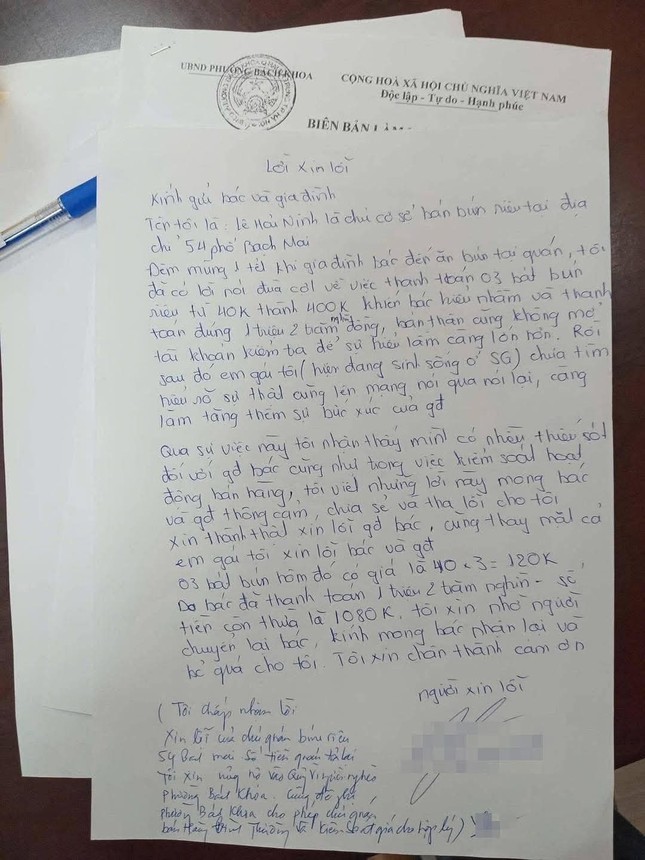 UBND PHƯỜNG BÁCH KHOA
CỘNG HOÀ XÃ HỘI CHỦ NGHĨA VIỆT NAM
Độc lập - Tự do - Hạnh phúc
BIÊN BẢN
Lời xin lỗi
Kính gửi bác và gia đình
Tên tôi là: Lê Hải Ninh là chủ cơ sở bán bún riêu tại địa
chỉ 54 phố Bạch Mai
Đêm mùng 1 tết khi gia đình bác đến ăn bún tại quán, tôi
đã có lời nói đùa cợt về việc thanh toán 03 bát bún
riêu từ 40K thành 400K khiến bác hiểu nhầm và thanh
toán đúng 1 triệu 2 trăm nghìn đồng, bản thân cũng không mở
tài khoản kiểm tra để sự hiểu lầm càng lớn hơn. Rồi
sau đó em gái tôi (hiện đang sinh sống ở SG) chưa tìm
hiểu rõ sự thật cũng lên mạng nói qua nói lại, càng
làm tăng thêm sự bức xúc của gđ
Qua sự việc này tôi nhận thấy mình có nhiều thiếu sót
đối với gđ bác cũng như trong việc kiểm soát hoạt
động bán hàng, tôi viết những lời này mong bác
và gđ thông cảm, chia sẻ và tha lỗi cho tôi
xin thành thật xin lỗi gđ bác, cũng thay mặt cả
em gái tôi xin lỗi bác và gđ
03 bát bún hôm đó có giá là 40 x 3 = 120K
Do bác đã thanh toán 1 triệu 2 trăm nghìn - số
tiền còn thừa là 1080K, tôi xin nhờ người
chuyển lại bác, kính mong bác nhận lại và
bỏ quá cho tôi. Tôi xin chân thành cảm ơn
người xin lỗi
( Tôi chấp nhận lời
xin lỗi của chủ quán bún riêu
54 Bạch mai số tiền quán trả lại
Tôi xin ủng hộ vào Quỹ Vì người nghèo
phường Bách Khoa. Cũng đề nghị
phường Bách Khoa cho phép chủ quán
bán hàng bình thường và kiểm soát giá cho hợp lý)